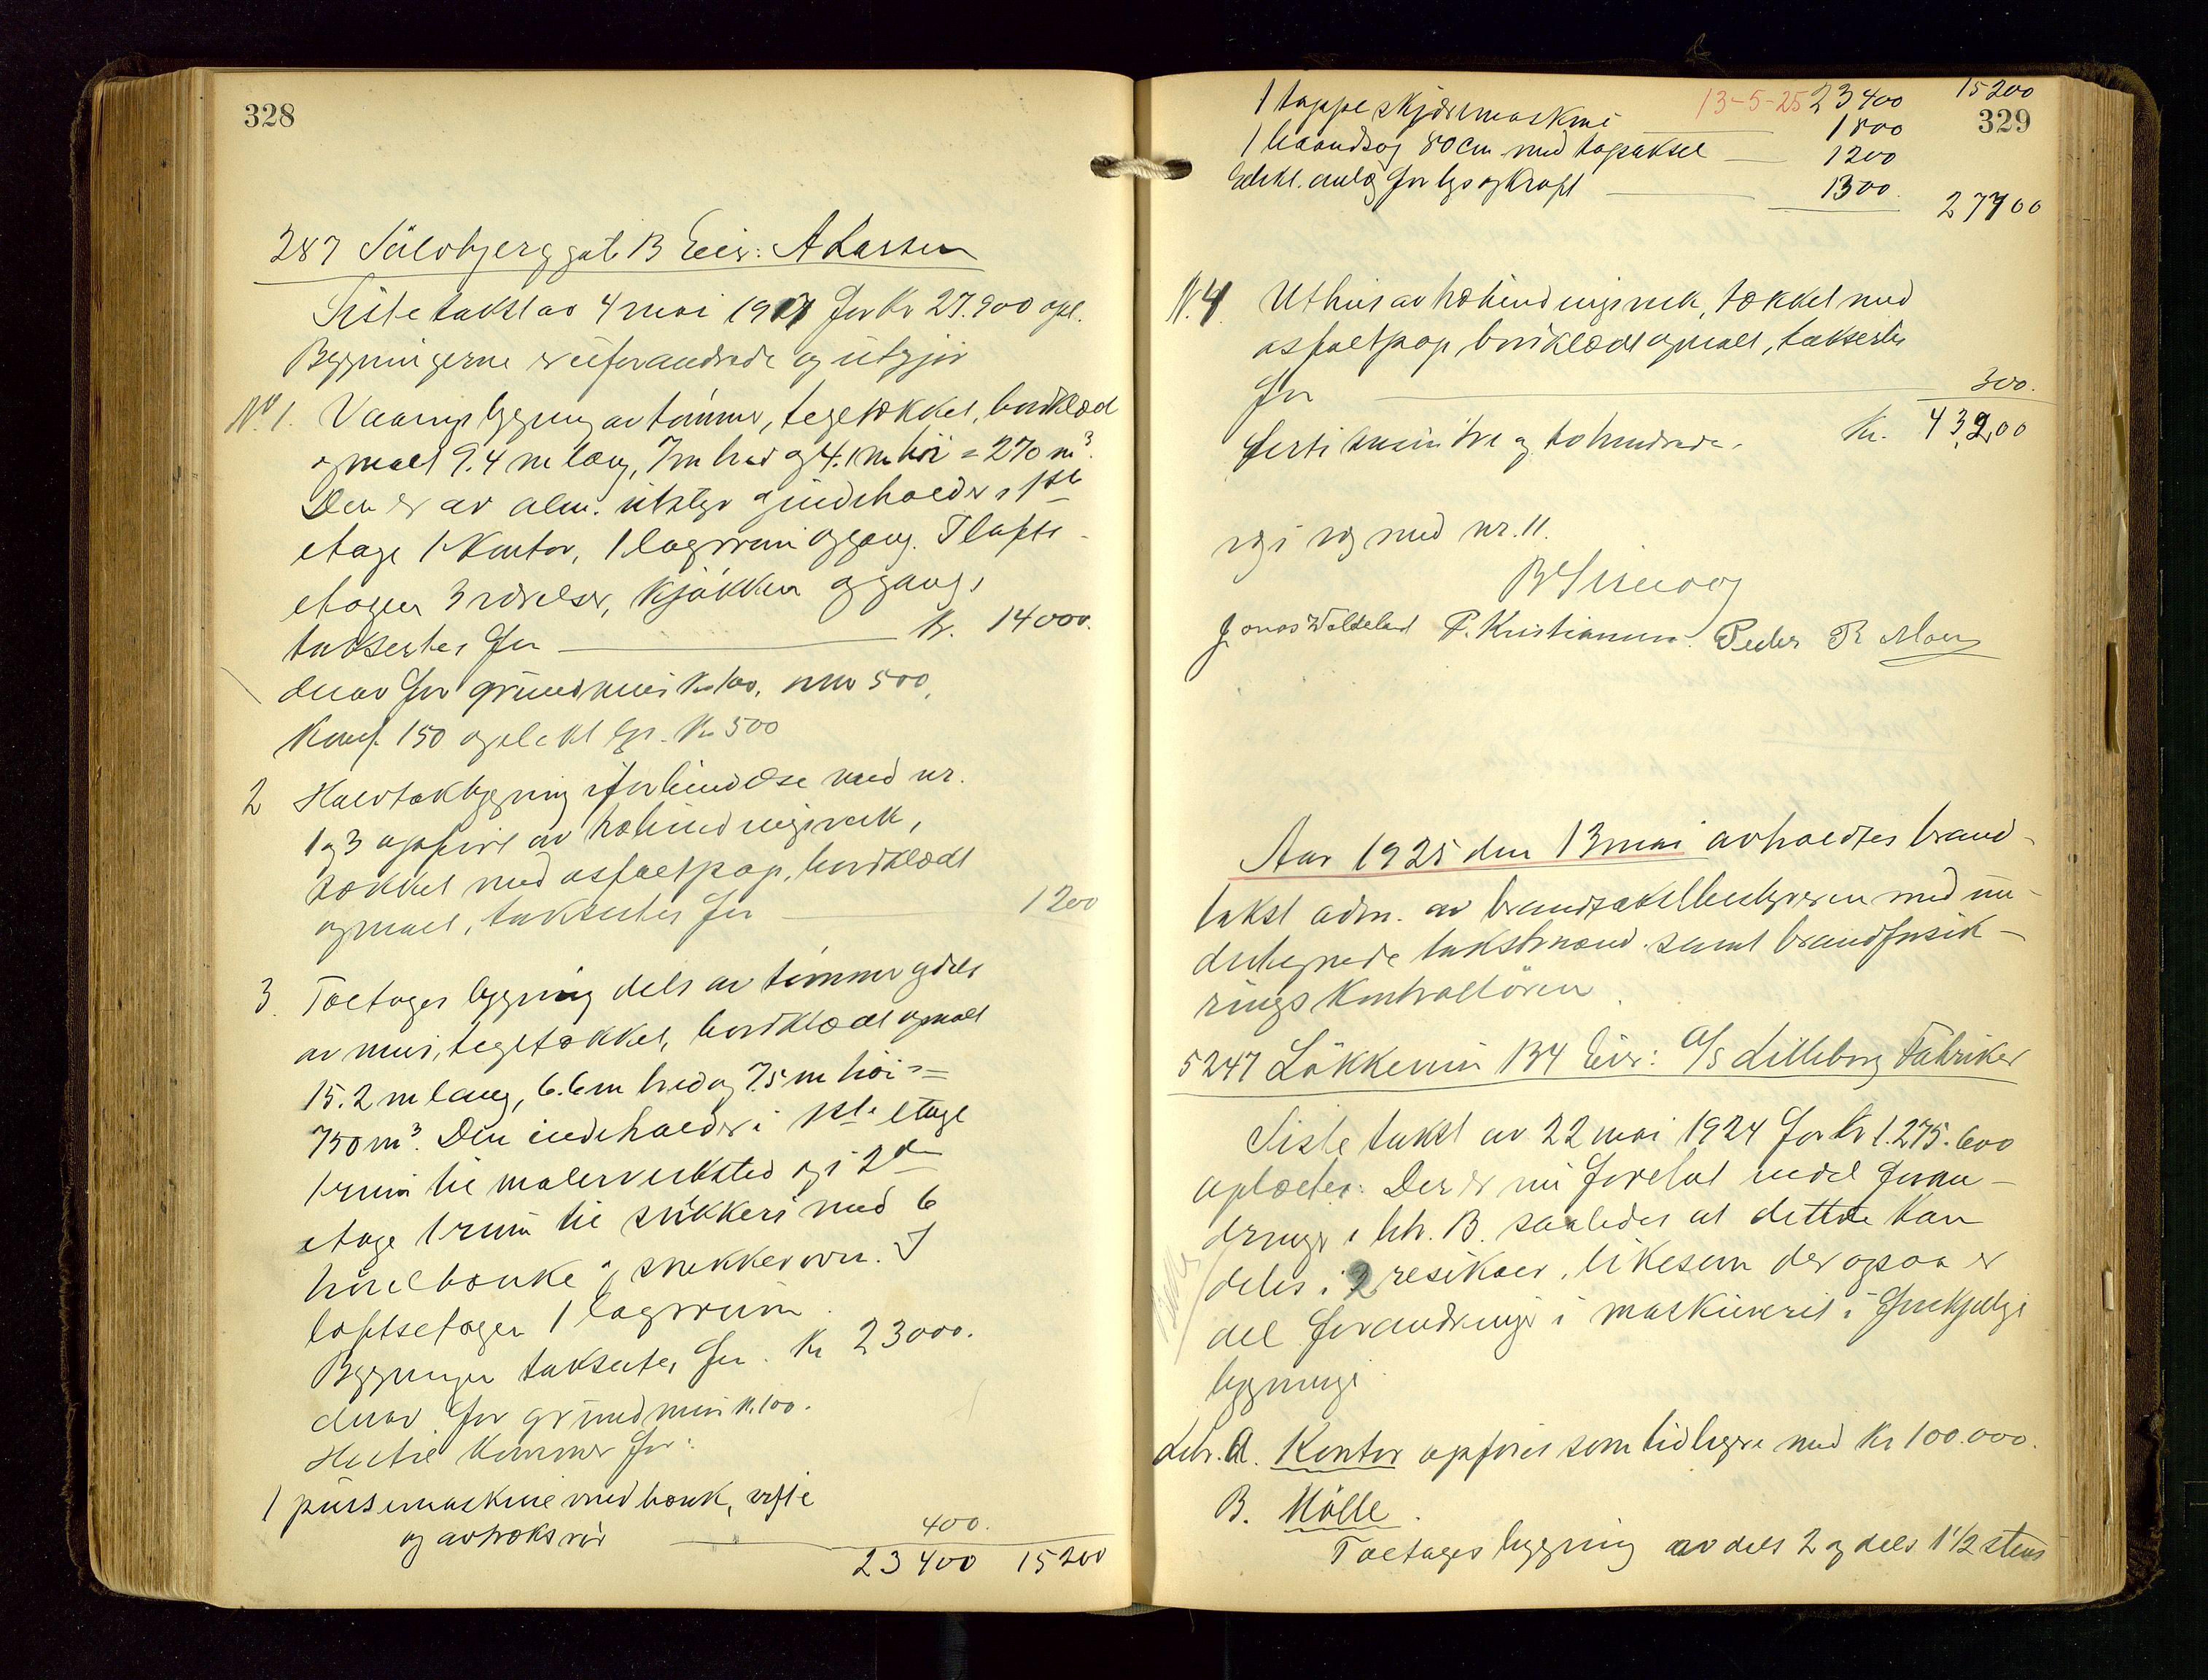 328
287 Sölvbjerg gat. 13 Eier: A Larsen
Siste takst av 4 mai 1917 for Kr 27.900 opl.
Bygningerne er uforandrede og utgjör
No. 1. Vaaningsbygning av tömmer, tegltækket, bordklæd
og malt 9.4 m lang, 7 m bred og 4.1 m höi = 270 m³.
Den er av alm. utstyr og indeholder i 1ste
etage 1 Kontor, 1 lagerrum og gang. I lofts-
etagen 3 værelser, kjökken og gang,
takseres for Kr. 14000.
derav for grundmur Kr 100, 500,
Komf. 150 og elekt lys. Kr 500
2 Halvtakbygning i forbindelse med nr.
1 og 3 opfört av utbindingsverk,
tækket med asfaltpap, bordklædt
og malt, takseres for 1200
3. Toetages bygning dels av tömmer og dels
av mur, tegltækket, bordklædt og malt
15.2 m lang, 6.6 m bred og 7.5 m höi =
750 m³. Den indeholder i 1ste etage
1 rum til malerverksted og i 2den
etage 1 rum til snekkeri med 6
hövelbænke og snekkerovn. I
loftsetagen 1 lagerrum.
Bygningen takseres for Kr 23000.
derav for grundmur Kr. 100.
Hertil kommer for:
1 pussemaskine med bænk, vifte
og avtræksrör 400.
23400 15200
13-5-25 23400 15200
329
1 tappeskjæremaskine 1800
1 baandsag 80 cm med topaksel 1200
Elekt. anlæg for lys og kraft 1300. 27700
N. 4 Uthus av utbindingsverk, tækket med
asfaltpap, bordklædt og malt, takseres
for 300.
Förti tusin tre og tohundrede. Kr. 43200
og med nr. 11.
Jonas Waldeland P. Kristiansen. Peder R Moen
Aar 1925 den 13 mai avholdtes brand-
takst adm. av brandtakstbestyreren med un-
dertegnede takstmænd samt brandforsik-
ringskontrollören.
5247 Lökkevein 134 Eier: A/S Lilleborg Fabriker
Siste takst av 22 mai 1924 for Kr 1.275.600
oplæstes. Der er nu foretat endel foran-
dringer i litr. B. saaledes at dette kan
deles i 2 resikoer, likesom der ogsaa er
del forandringer i maskineriet i forskjellige
bygninger
Litr. A. Kontor opföres som tidligere med Kr 100.000.
B. Mölle.
Toetages bygning av dels 2 og dels 1 1/2 stens